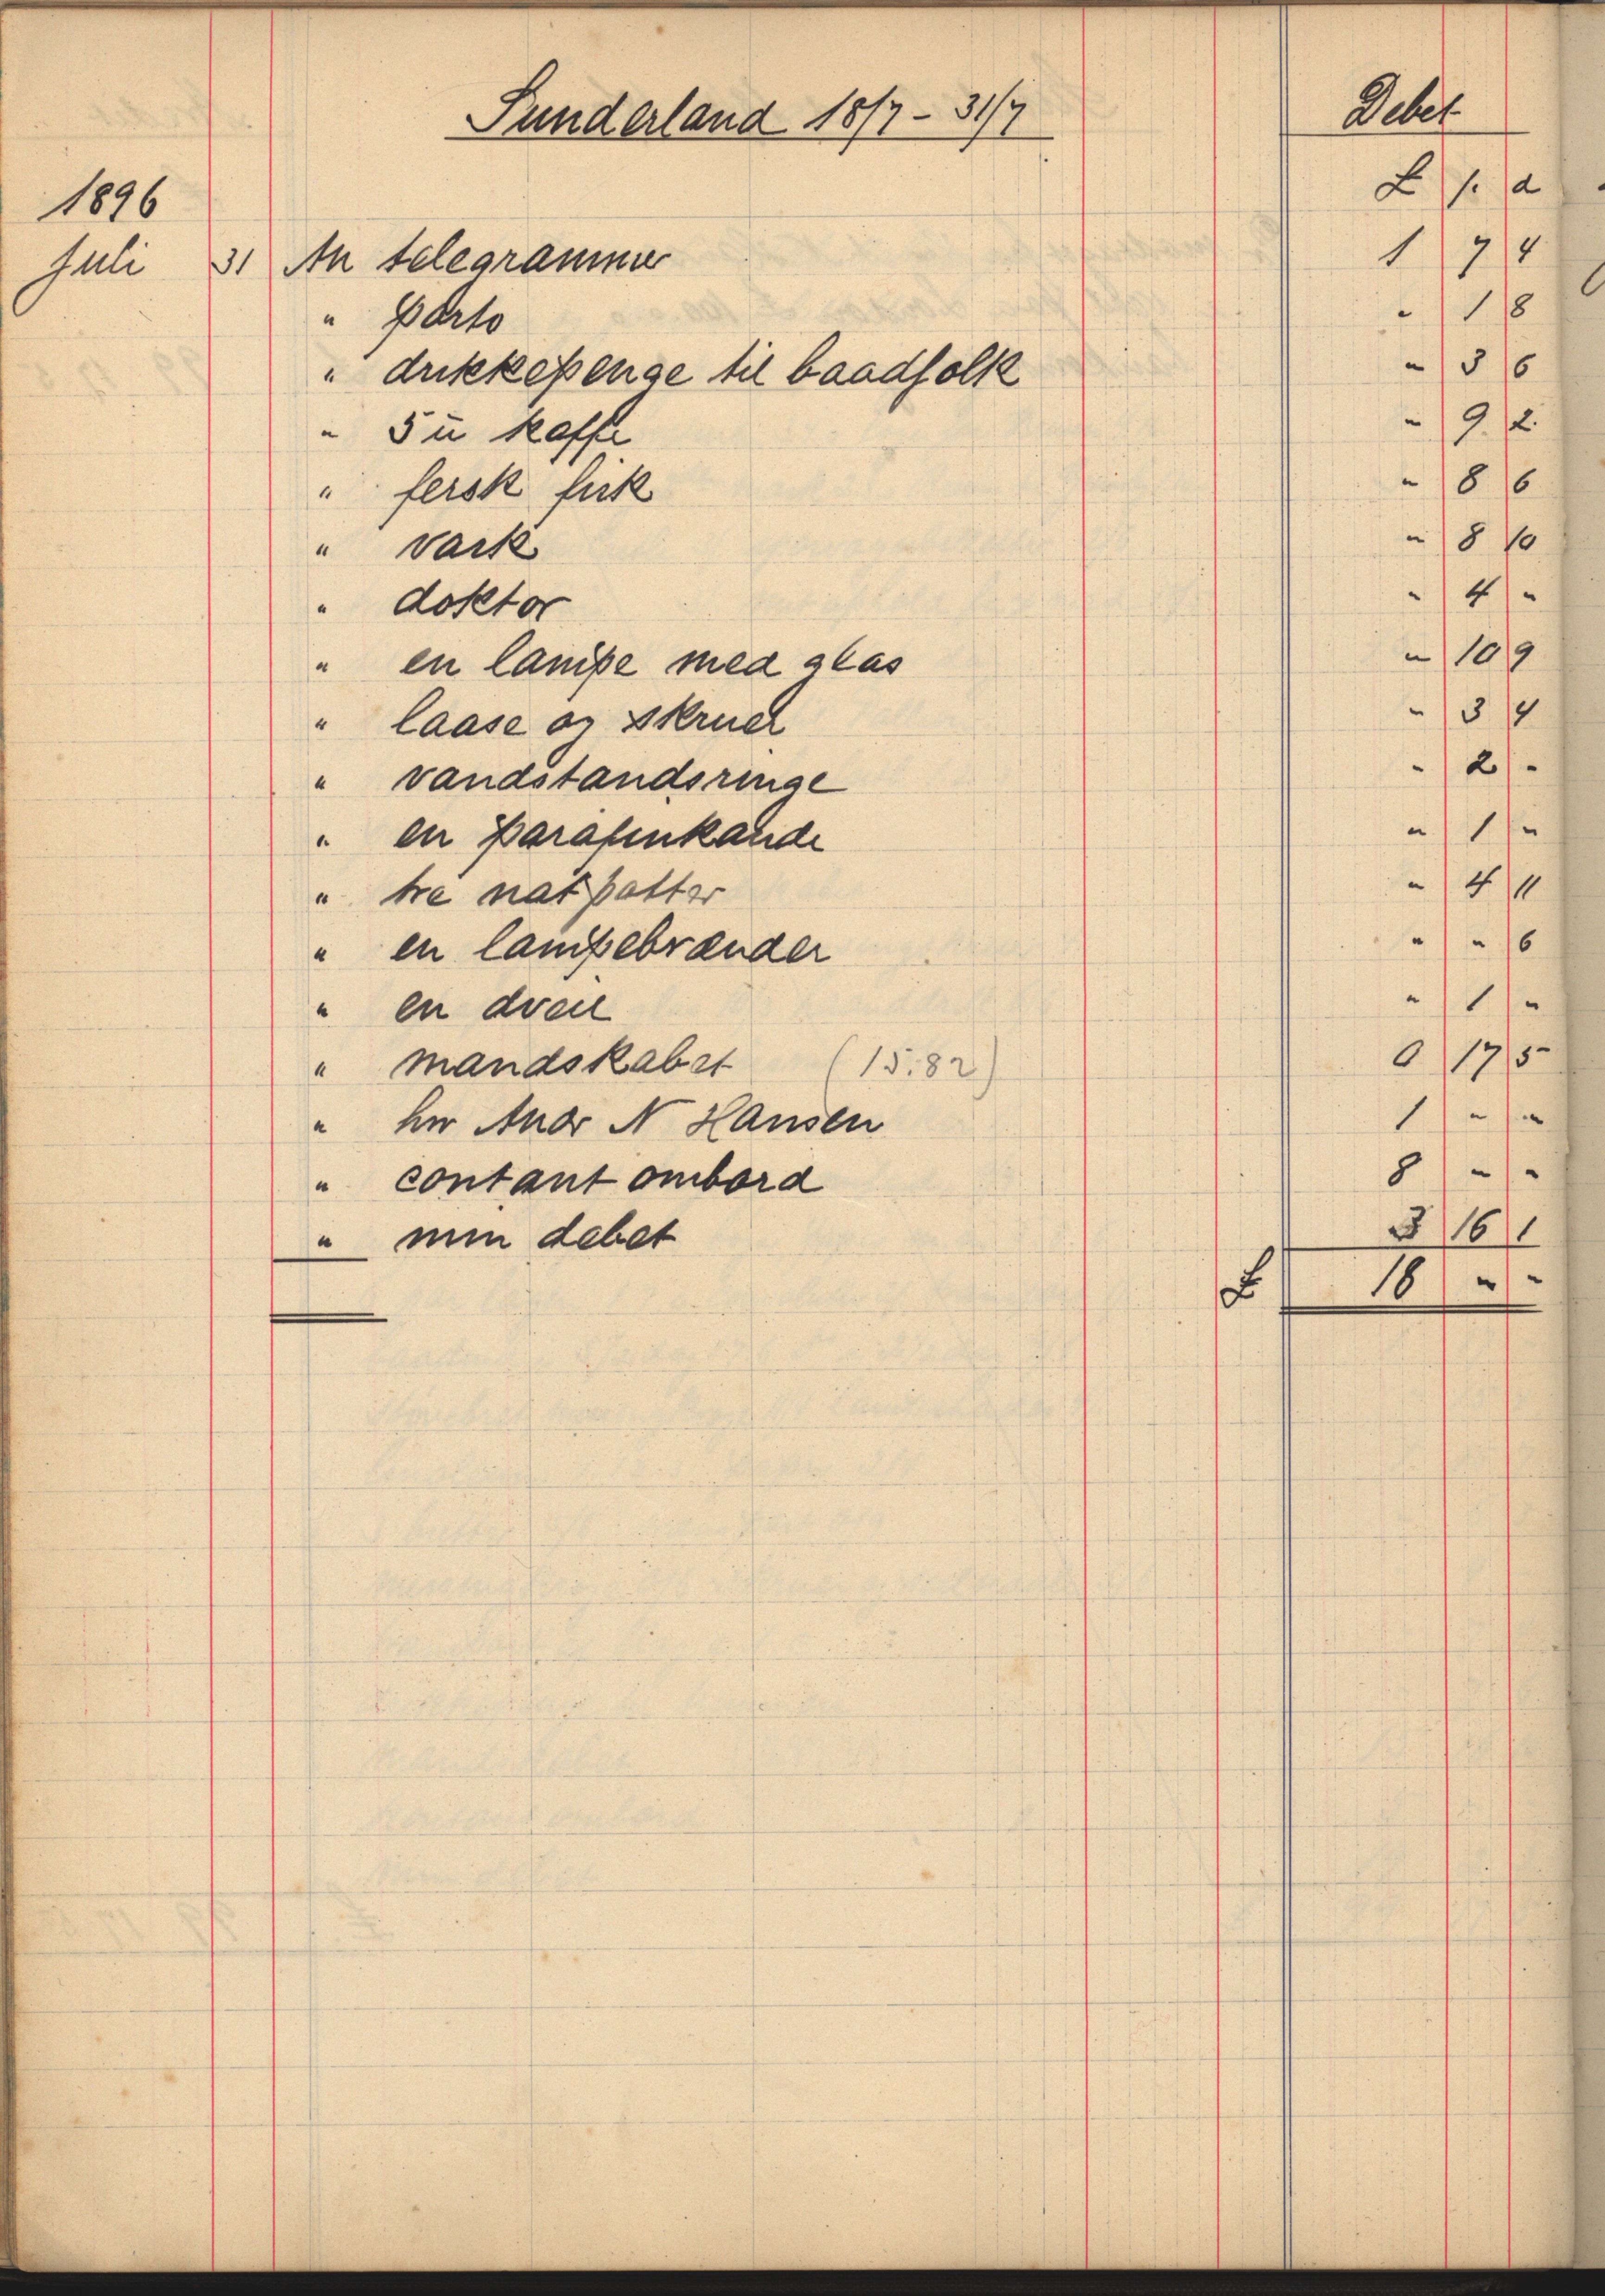 Sunderland 18/7 - 31/7 Debet
1896 £ s. d
Juli 31 An telegrammer 1 7 4
" porto " 1 8
" drikkepenge til baadfolk " 3 6
" 5 u kaffe " 9. 2
" fersk fisk " 8 6
" vask " 8 10
" doktor " 4 "
" en lampe med glas " 10 9
" laase og skruer " 3 4
" vandstandsringe " 2 "
" en parafinkande " 1 "
" tre natpotter " 4 11
" en lampebrænder " " 6
" en dveil " 1 "
" mandskabet (15.82) 0 17 5
" hr Andr N Hansen 1 " "
" contant ombord 8 " "
" min debet 3 16 1
£ 18 " "